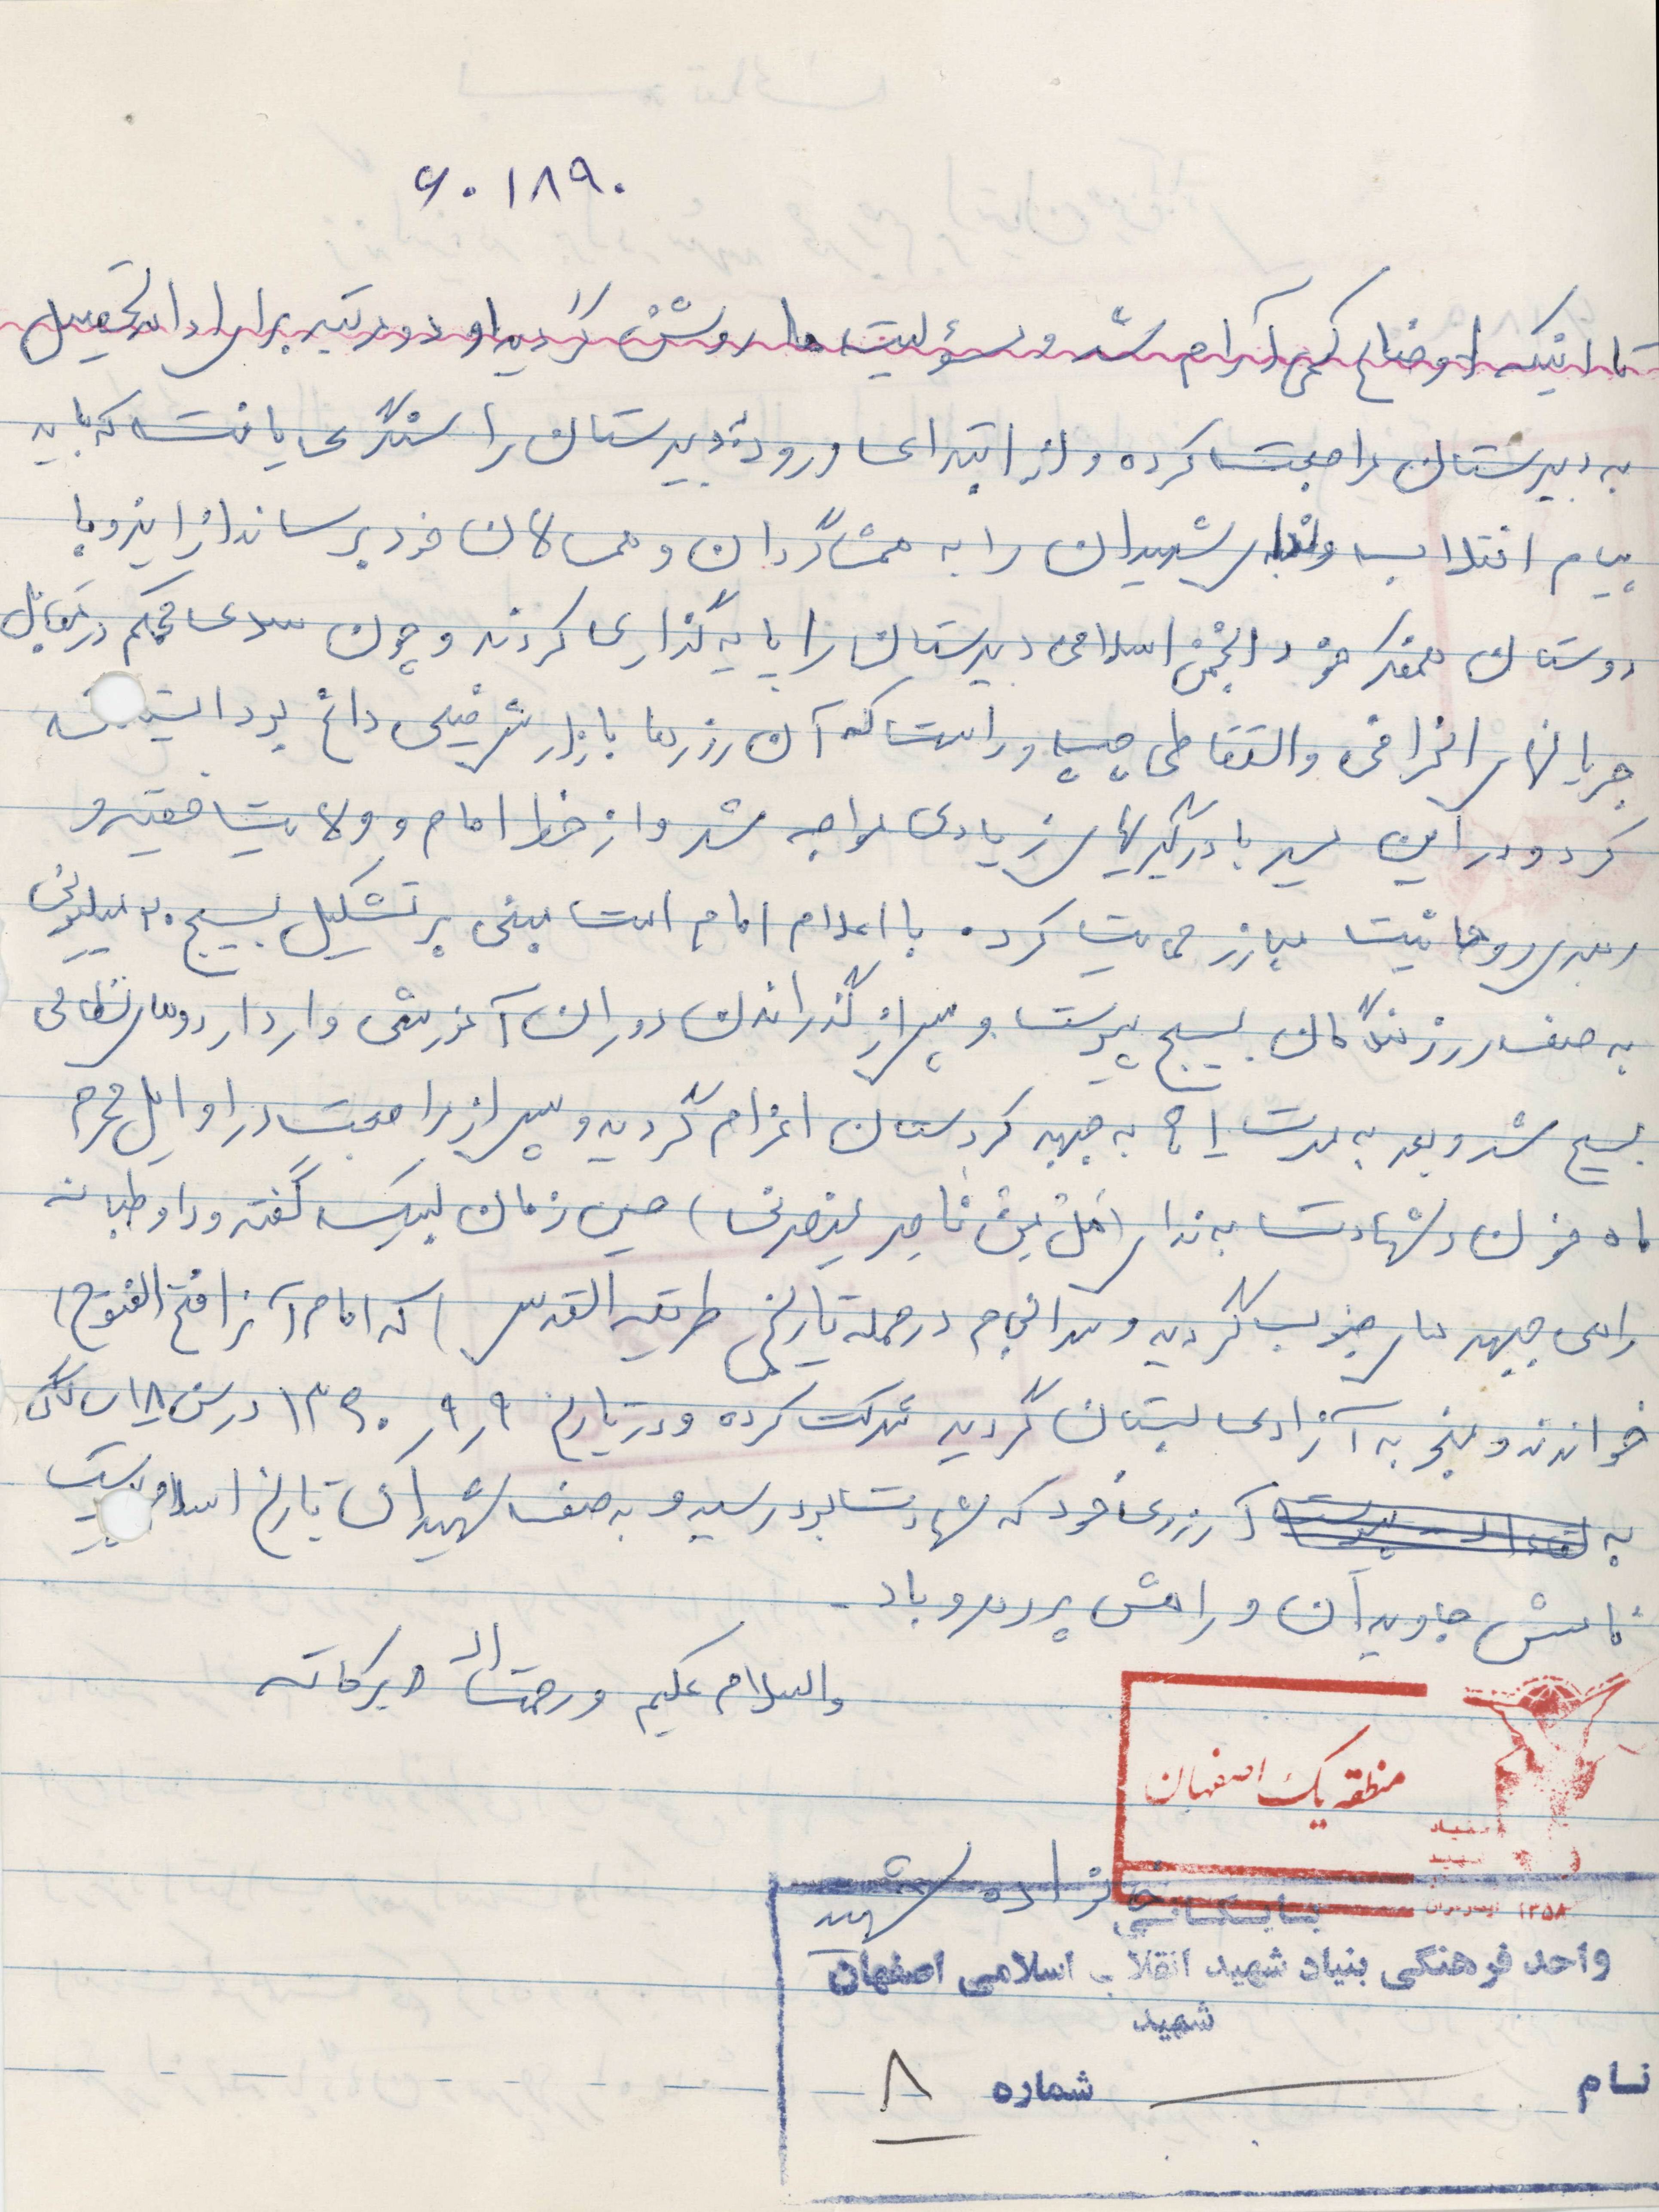 ۶۰۱۸۹۰
تا اینکه اوضاع کمی آرام شد و مسؤلیت ما روشن گردید او دو مرتبه برای ادامه تحصیل
به دبیرستان مراجعت کرده و از ابتدای ورود دبیرستان را سنگری یافت که باید
پیام انقلاب و ندای شهیدان را به همشاگردان و همسالان خود برساند از اینرو با
دوستان همفکر خود انجمن اسلامی دبیرستان را پایه گذاری کردند و چون سدی محکم در مقابل
جریانهای انحرافی و التقاطی چپ و راست که آن روزها بازار شان خیلی داغ بود
کرد و در این مسیر با درگیریهای زیادی مواجه شد و از خط امام و ولایت فقیه و
رهبری روحانیت مبارز حمایت کرد. با اعلام امام امت مبنی بر تشکیل بسیج ۲۰ میلیونی
به صف رزمندگان بسیج پیوست و پس از گذراندن دوران آموزشی وارد اردوهای نظامی
بسیج شد و بعد به مدت به جبهه کردستان اعزام گردید و پس از مراجعت در اوایل محرم
ماه خون و شهادت به ندای (هَلْ مِنْ ناصِر ینصرنی) حسین زمان لبیک گفته و داوطلبانه
راهی جبهه های جنوب گردید و سرانجام در حمله تاریخی طریق القدس (که امام آنرا فتح الفتوح)
خواندند و منجر به آزادی بستان گردید شرکت کرده و در تاریخ ۹ر۹ر۱۳۶۰ در سن ۱۸ سالگی
به آرزوی خود که شهادت بود رسید و به صف شهیدان تاریخ اسلام پیوست
نامش جاویدان و راهش پر رهرو باد -
والسلام علیکم و رحمت الله و برکاته
منطقه یک اصفهان
بنیاد
شهید
۱۳۵۸
خانواده شهید
بایگانی
واحد فرهنگی بنیاد شهید انقلاب اسلامی اصفهان
شهید
نام شماره ۸